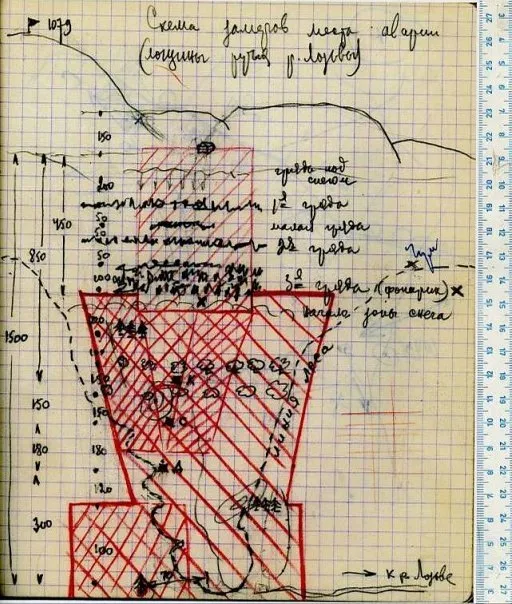 1079
Схема замеров места аварии
(лощины ручья р. Лозьвы)
150
200
гряда под
снегом
50
1я гряда
50
малая гряда
50
2я гряда
450
850
50
100
3я гряда (фонарик)
начала зоны снега
1500
линия леса
150
150
180
180
120
300
100
к р. Лозьве